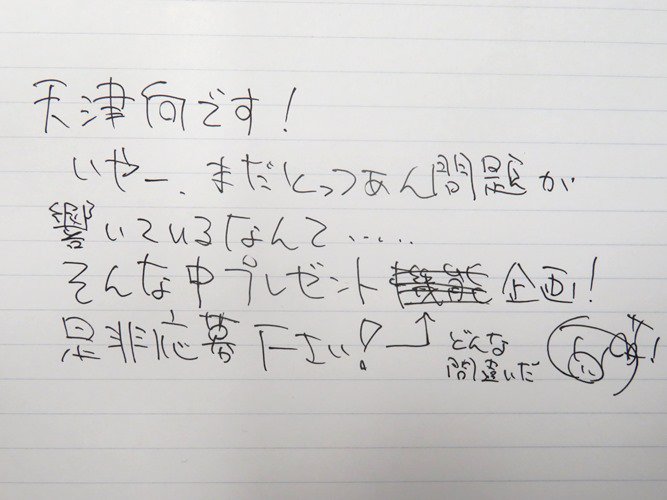 天津向です!
いやー、まだとっつあん問題が
響いているなんて……
そんな中プレゼント 企画!
是非応募下さい!
どんな
間違いだ
!